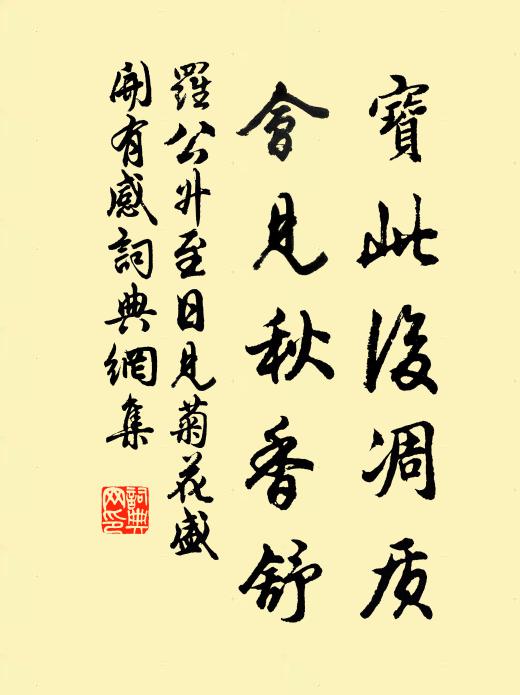 寶此後凋质
會見秋香舒
羅公升至日見菊花盛
開有感詞典網集
詞典
网印